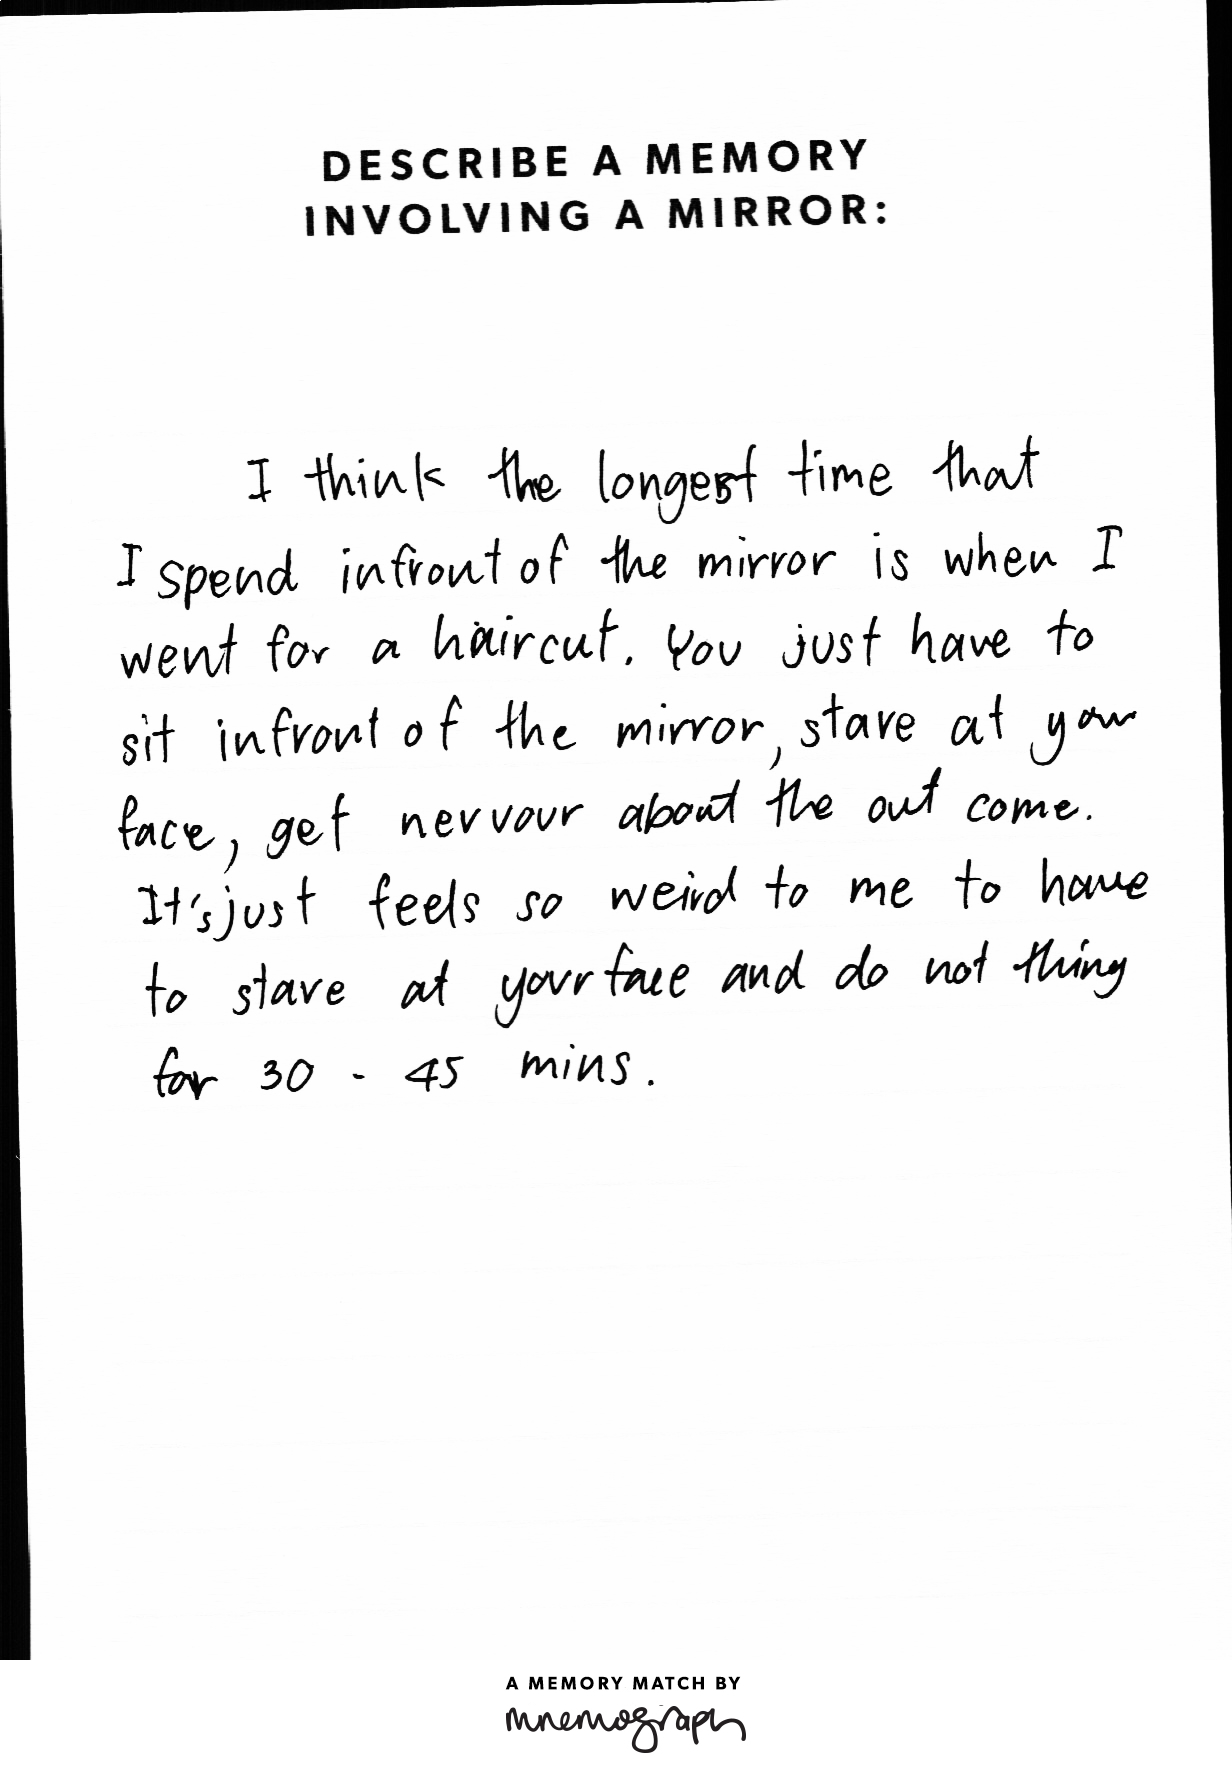 DESCRIBE A MEMORY
INVOLVING A MIRROR:
I think the longest time that
I spend infront of the mirror is when I
went for a haircut. You just have to
sit infront of the mirror, stare at your
face, get nervour about the out come.
It's just feels so weird to me to have
to stare at your face and do not thing
for 30 - 45 mins.
A MEMORY MATCH BY
mnemograph